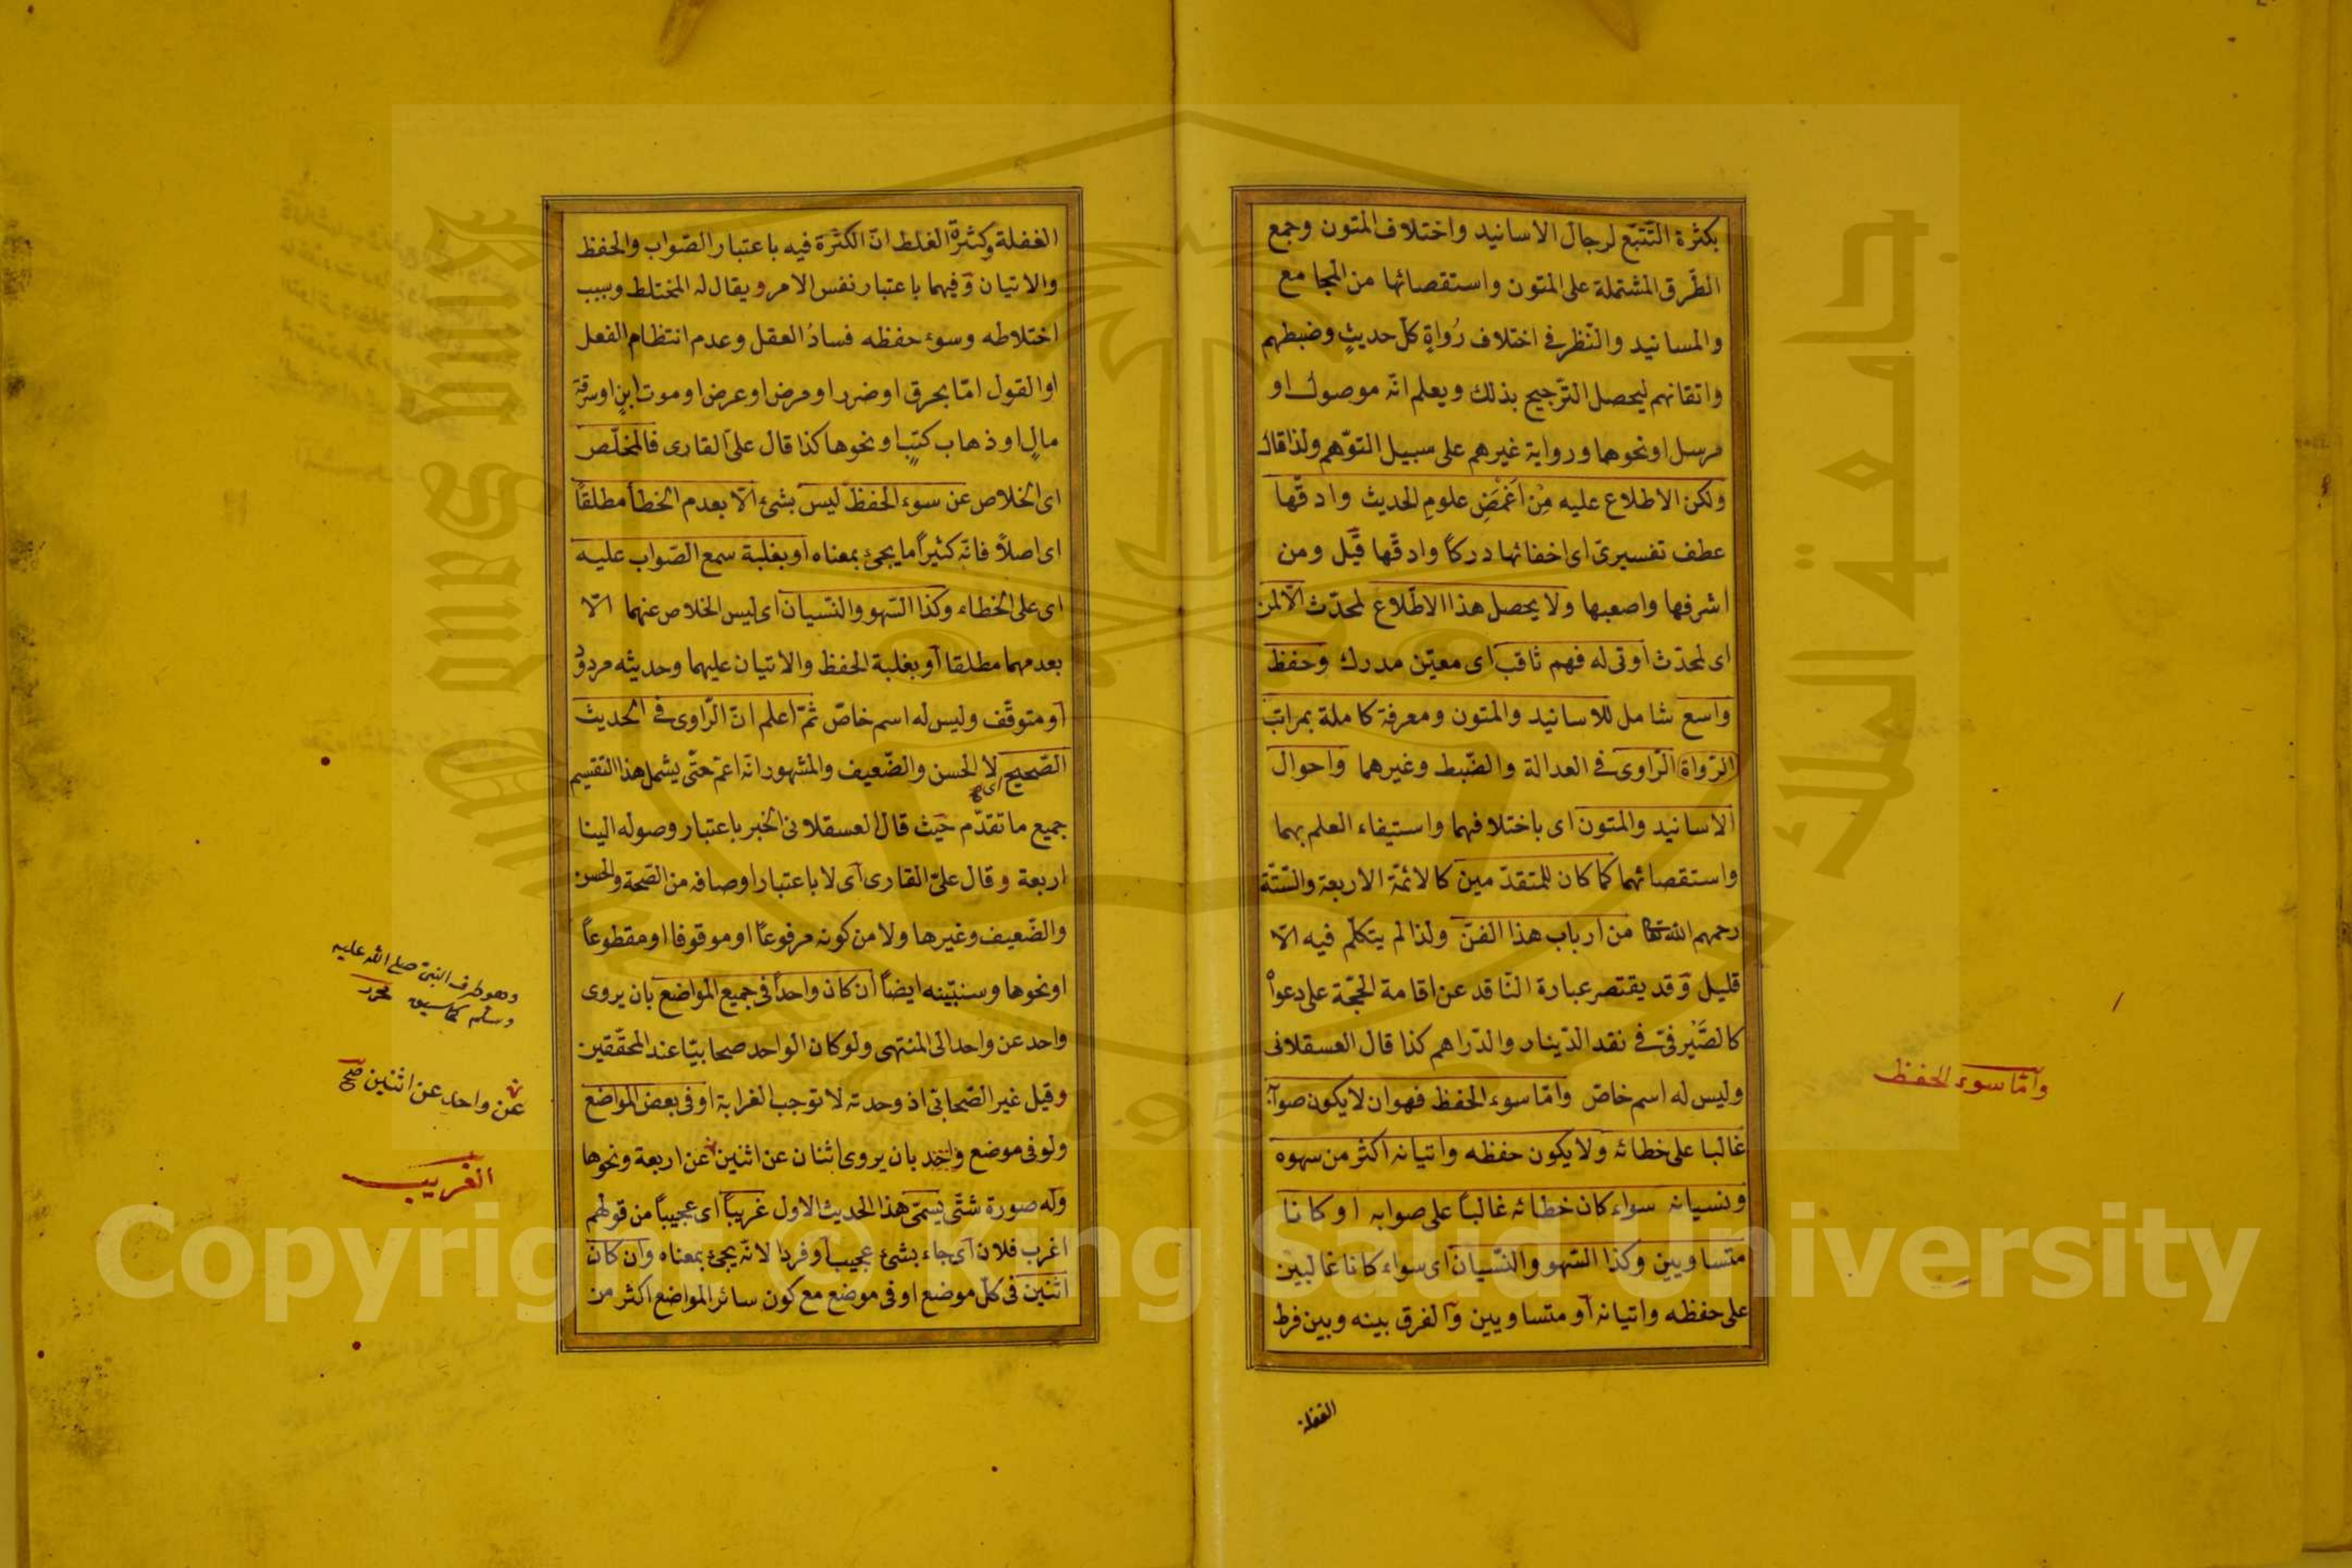 بكثرة التّتبّع لرجال الاسانيد واختلاف المتون وجمع
الطّرق المشتملة على المتون واستقصائها من المجامع
والمسانيد والنّظر في اختلاف رُواةِ كلّ حديثٍ وضبطهم
واتقانهم ليحصل التّرجيح بذلك ويعلم انّه موصول او
مرسل او نحوهما ورواية غيرهم على سبيل التوّهم ولذا قال
ولكن الاطلاع عليه مِنْ اَغْمَضِ علومِ الحديث وادقّها
عطف تفسيرىّ اى اخفائها دركاً وادقّها قيل ومن
اشرفها واصعبها ولا يحصل هذا الاطّلاع لمحدّث الّا لمن
اى لمحدّث اوتى له فهم ثاقب اى معيّن مدرك وحفظ
واسع شامل للاسانيد والمتون ومعرفة كاملة بمراتب
الرّواة الرّاوى في العدالة والضّبط وغيرهما واحوال
الاسانيد والمتون اى باختلافهما واستيفاء العلم بهما
واستقصائهما كما كان للمتقدّمين كالائمّة الاربعة والسّتّة
رحمهم الله تعالى من ارباب هذا الفنّ ولذا لم يتكلّم فيه الّا
قليل وقد يقتصر عبارة النّاقد عن اقامة الحجّة على دعواه
كالصَّيْرفىّ في نقد الدّينار والدّراهم كذا قال العسقلانى
وليس له اسم خاصّ وامّا سوء الحفظ فهو ان لا يكون صوابه
غالبا على خطائه ولا يكون حفظه واتيانه اكثر من سهوه
ونسيانه سواء كان خطائه غالباً على صوابه او كانا
متساويين وكذا السّهو والنّسيان اى سواء كانا غالبين
على حفظه واتيانه او متساويين والفرق بينه وبين فرط
الغفلة
وامّا سوء الحفظ
الغفلة وكثرة الغلط انّ الكثرة فيه باعتبار الصّواب والحفظ
والاتيان وفيهما باعتبار نفس الامر ويقال له المختلط وسبب
اختلاطه وسوء حفظه فسادُ العقل وعدم انتظام الفعل
او القول امّا بحرق او ضرر او مرض او عرض او موت ابنٍ او سرقة
مالٍ او ذهاب كتبٍ او نحوها كذا قال علىّ القارى فالمخلّص
اى الخلاص عن سوء الحفظ ليس بشئ الّا بعدم الخطأ مطلقاً
اى اصلاً فانّه كثيراً ما يجئ بمعناه او بغلبة سمع الصّواب عليه
اى على الخطاء وكذا السّهو والنّسيان اى ليس الخلاص عنهما الّا
بعدمهما مطلقا او بغلبة الحفظ والاتيان عليهما وحديثه مردودٌ
او متوقّف وليس له اسم خاصّ ثمّ اعلم انّ الرّاوى في الحديث
الصّحيح لا الحسن والضّعيف والمشهور انّه اعمّ حتّى يشمل هذا التقسيم
جميع ما تقدّم حيث قال العسقلانى الخبر باعتبار وصوله الينا
اربعة وقال علىّ القارى اى لا باعتبار اوصافه من الصّحة والحسن
والضّعيف وغيرها ولا من كونه مرفوعاً او موقوفا او مقطوعاً
او نحوها وسنبيّنه ايضاً ان كان واحداً في جميع المواضع بان يروى
واحد عن واحد الى المنتهى ولو كان الواحد صحابيّا عند المحقّقين
وقيل غير الصّحابى اذ وحدته لا توجب الغرابة او في بعض المواضع
ولو في موضع واحد بان يروى اثنان عن اثنين عن اربعة ونحوها
وله صورة شتّى يسمّى هذا الحديث الاول غريباً اى عجيباً من قولهم
اغرب فلان اى جاء بشئ عجيب او فردا لانّه يجئ بمعناه وان كان
اثنين في كلّ موضع او في موضع مع كون سائر المواضع اكثر من
وهو طرف النبىّ صلى الله عليه
وسلّم كما سيق محرر
عن واحد عن اثنين صح
الغريب
جامعة الملك سعود
King Saud University
1957
Copyright © King Saud University